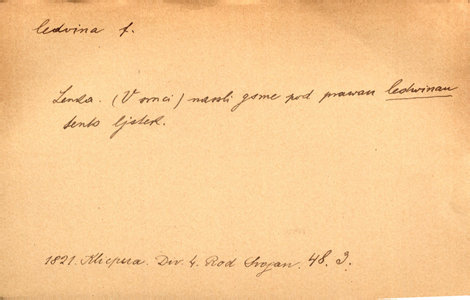 ledvina f.
Lenka. (V srnci) nassli gsme pod prawau ledwinau
tento ljstek.
1821. Klicpera. Div. 4. Rod Svojan. 48. J.